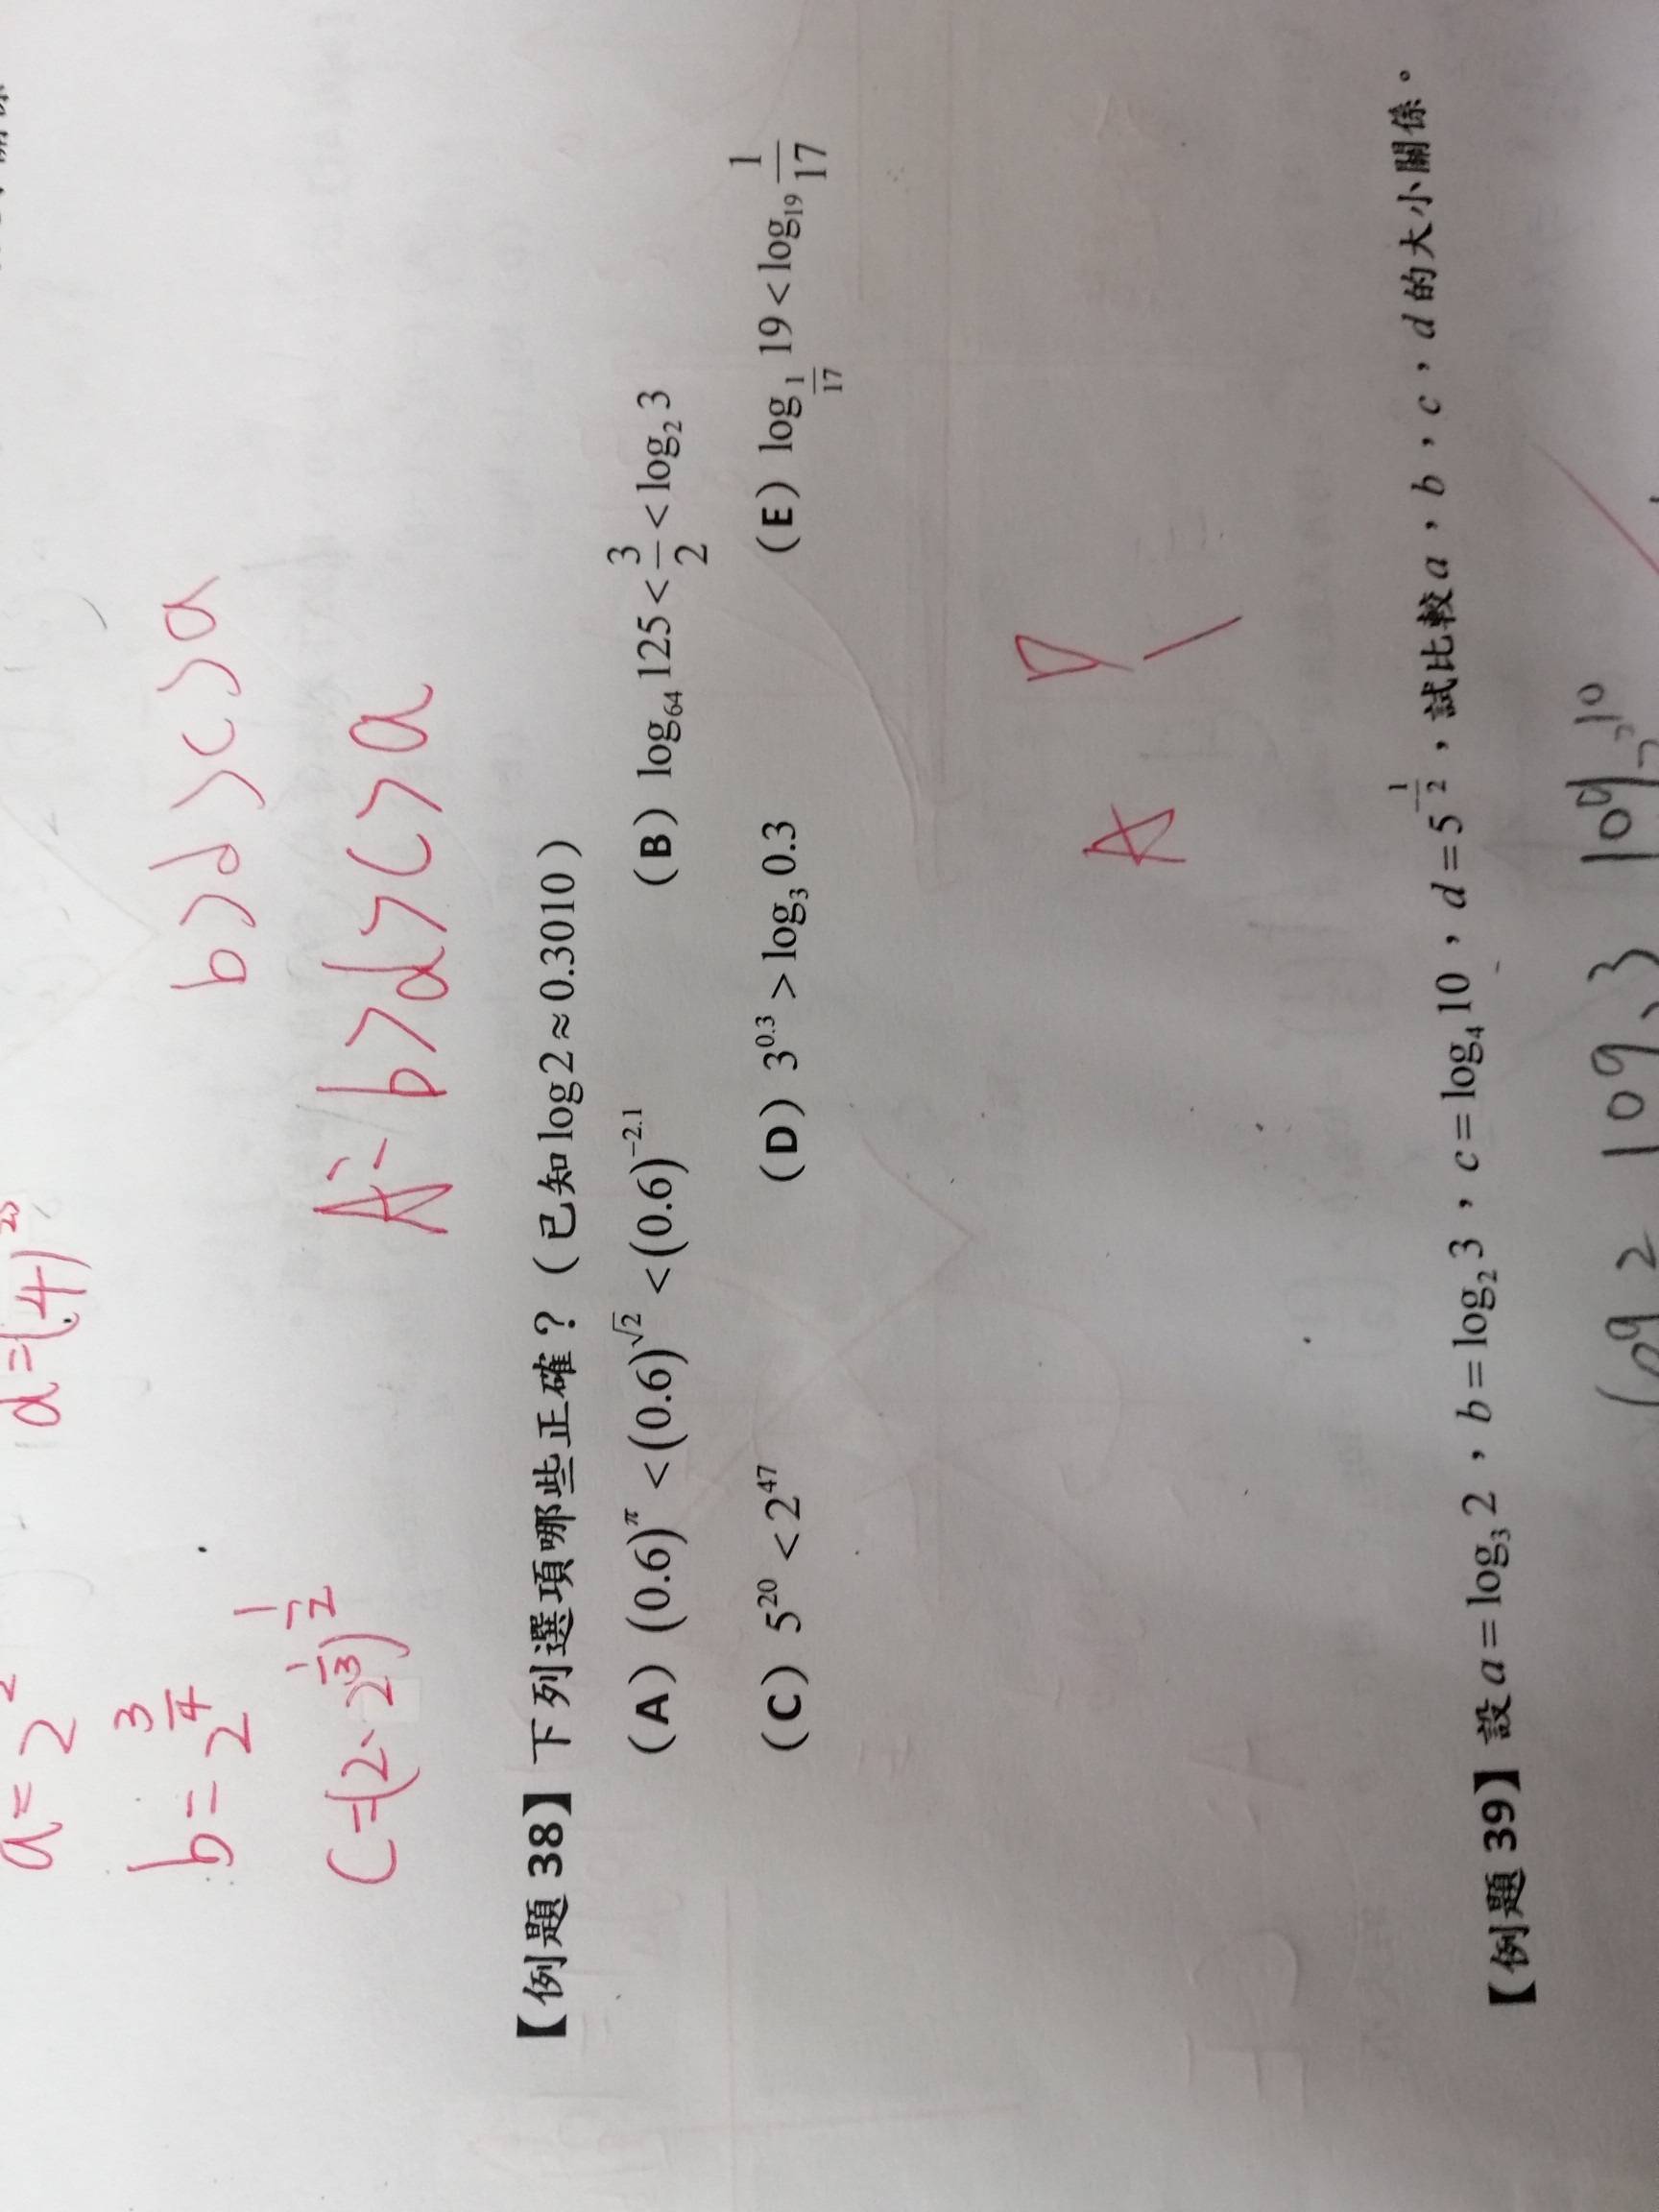 a = 2
b = 2^(3/4)
c = (2·2^(1/3))^(1/2)
d = (.4)
b > d > c > a
A: b > d > c > a
【例題 38】下列選項哪些正確？（已知 log 2 ≈ 0.3010）
（A）(0.6)^π < (0.6)^√2 < (0.6)^−2.1 （B）log₆₄ 125 < 3/2 < log₂ 3
（C）5²⁰ < 2⁴⁷ （D）3^0.3 > log₃ 0.3 （E）log_(1/17) 19 < log₁₉ 1/17
A D
【例題 39】設 a = log₃ 2，b = log₂ 3，c = log₄ 10，d = 5^(−1/2)，試比較 a，b，c，d 的大小關係。
log 2 log 3